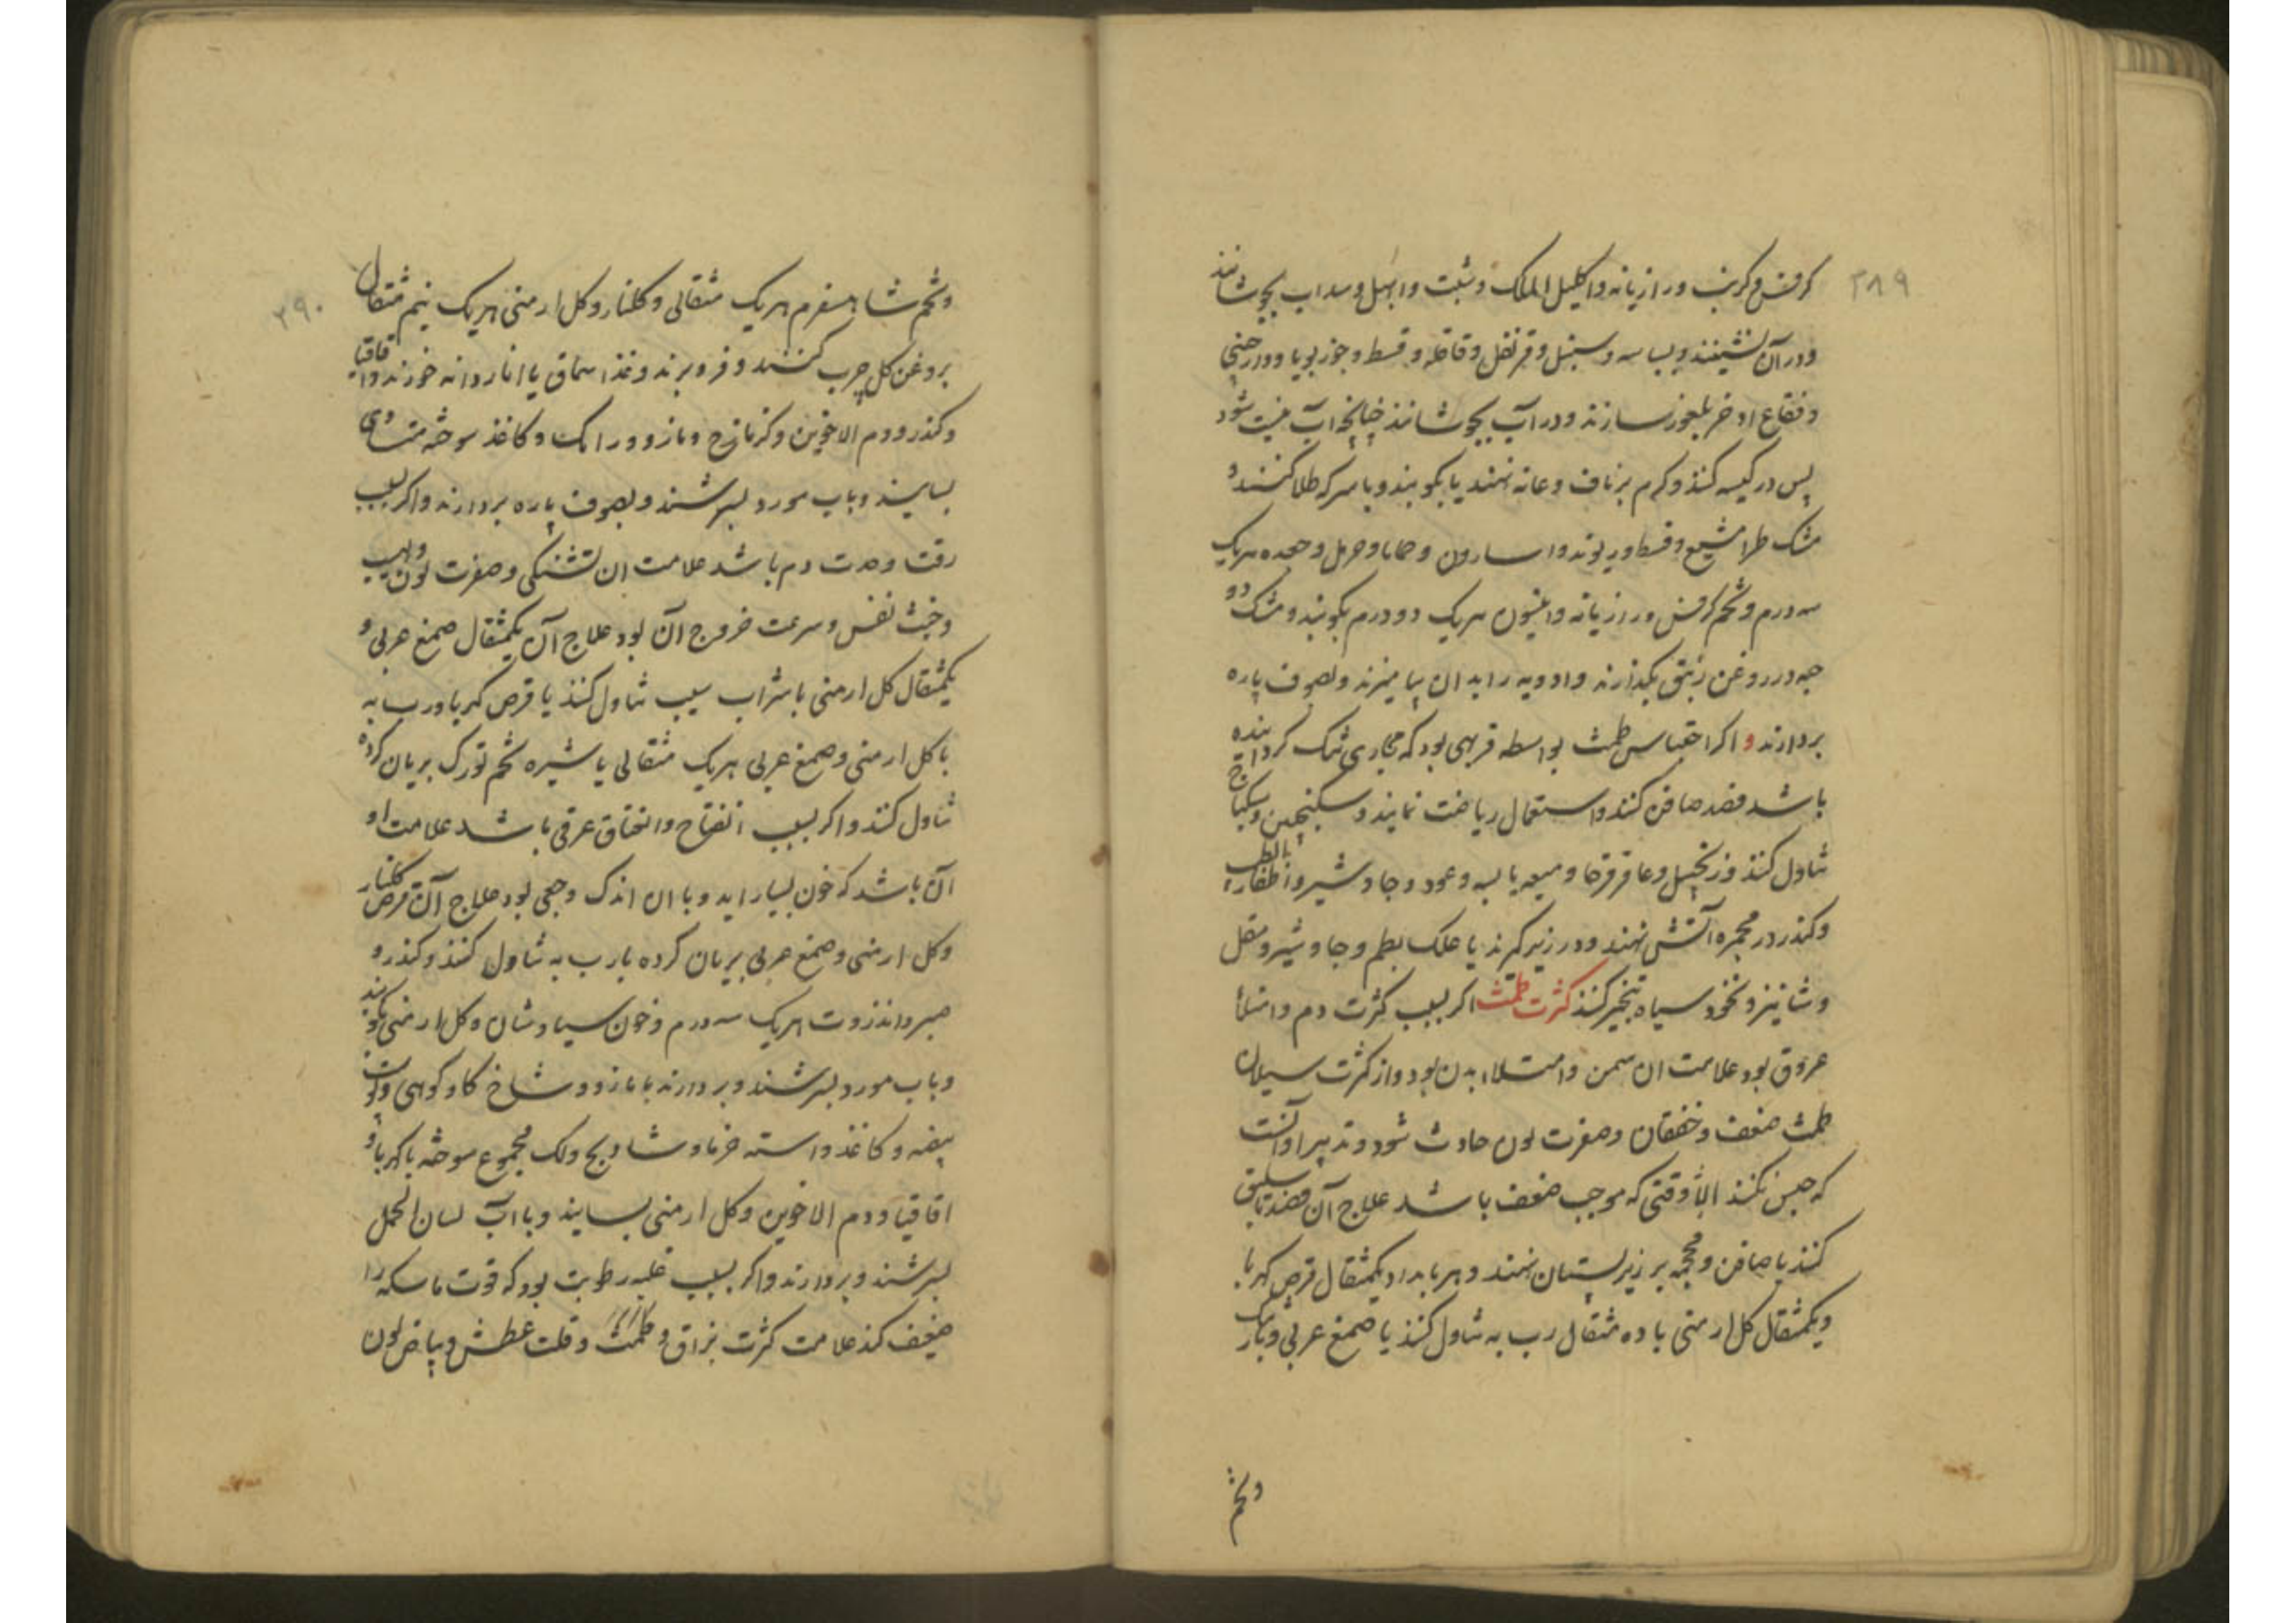 ۳۸۹
کرفس و کرنب و رازیانه و اکلیل الملک و شبت و ابهل و سداب بجوشانند
و در آن نشینند و بسباسه و سنبل و قرنفل و قاقله و قسط و جوز بویا و دارچینی
و فقاع اذخر بلعوز سازند و در آب بجوشانند چنانچه آب نیست شود
پس در کیسه کنند و کرم بر ناف و عانه نهند یا بکوبند و با سرکه طلا کنند و
مشک طرامشیع و قسط و ریوند و اسارون و حماما و حرمل و جعده هریک
سه درم و تخم کرفس و رازیانه و انیسون هریک دو درم بکوبند و مشک دو
حبه در روغن زنبق بکدازند و ادویه را بدان بیامیزند و بصوف پاره
بردارند و اکر احتباس طمث بواسطه فربهی بود که مجاری تنک کردانیده
باشد فصد صافن کنند و استعمال ریاضت نمایند و سکنجبین و سکباج
تناول کنند و زنجبیل و عاقرقرحا و میعه یابسه و عود و جاوشیر و اظفار الطیب
و کندر در مجمره آتش نهند و در زیر کیرند یا علک بطم و جاوشیر و مقل
و شانیز و نخود سیاه تبخیر کنند کثرت طمث اکر بسبب کثرت دم و امتلاء
عروق بود علامت ان سمن و امتلاء بدن بود و از کثرت سیلان
طمث ضعف و خفقان و صفرت لون حادث شود و تدبیر او آنست
که حبس نکنند الا وقتی که موجب ضعف باشد علاج آن فصد باسلیق
کنند یا صافن و محجمه بر زیر پستان نهند و هر بامداد یکمثقال قرص کهربا
و یکمثقال کل ارمنی با ده مثقال رب به تناول کنند یا صمغ عربی و بارتنک
و تخم
۳۹۰
و تخم شاهسفرم هریک مثقالی و کلنار و کل ارمنی هریک نیم مثقال
بروغن کل چرب کنند و فرو برند و غذا سماق یا اناردانه خورند و اقاقیا
و کندر و دم الاخوین و کزمازج و مازو و رامک و کاغذ سوخته متساوی
بسایند و باب مورد بسرشند و بصوف پاره بردارند و اکر بسبب
رقت و حدت دم باشد علامت ان تشنکی و صفرت لون و لهیب
و خبث نفس و سرعت خروج آن بود علاج آن یکمثقال صمغ عربی و
یکمثقال کل ارمنی با شراب سیب تناول کنند یا قرص کهربا و رب به
با کل ارمنی و صمغ عربی هریک مثقالی یا شیره تخم تورک بریان کرده
تناول کنند و اکر بسبب انفتاح و انخناق عرقی باشد علامت او
آن باشد که خون بسیار اید و با ان اندک وجعی بود علاج آن قرص کلنار
و کل ارمنی و صمغ عربی بریان کرده با رب به تناول کنند و کندر و
صبر و انزروت هریک سه درم و خون سیاوشان و کل ارمنی بکوبند
و باب مورد بسرشند و بردارند یا مازو و شاخ کاو کوهی و پوست
بیضه و کاغذ و استه خرما و شادنج و لک مجموع سوخته با کهربا و
اقاقیا و دم الاخوین و کل ارمنی بسایند و با آب لسان الحمل
بسرشند و بردارند و اکر بسبب غلبه رطوبت بود که قوت ماسکه را
ضعیف کند علامت کثرت بزاق و طمث و قلت عطش و بیاض لون